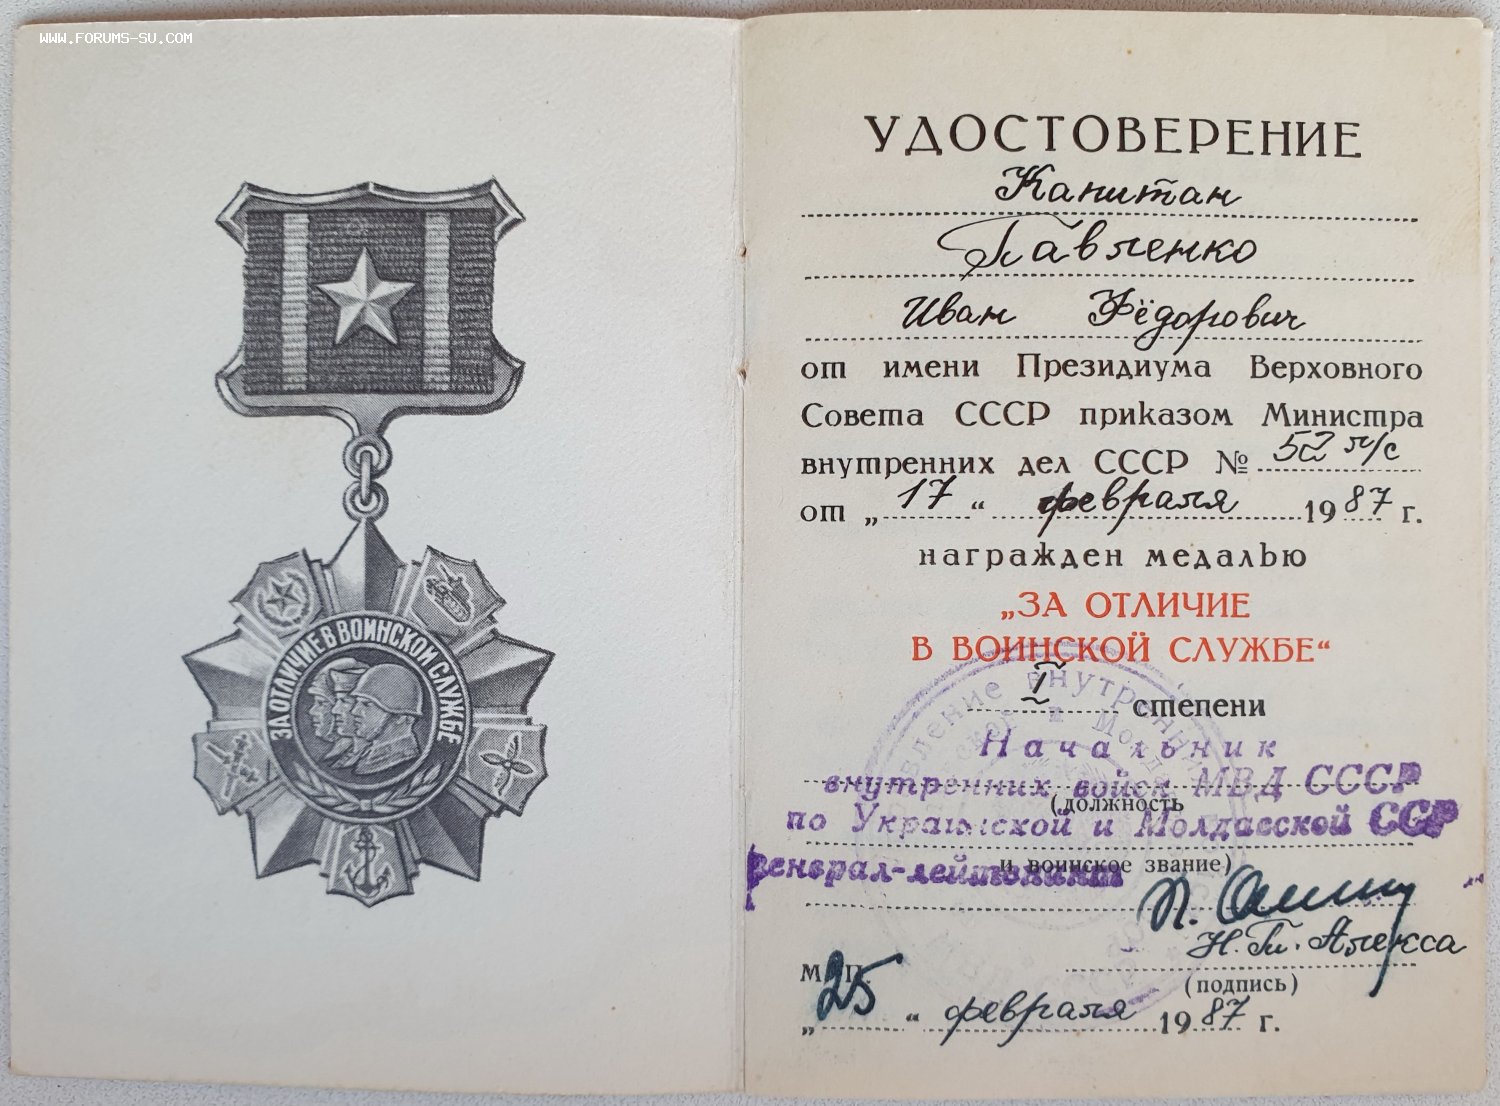 WWW.FORUMS-SU.COM
ЗА ОТЛИЧИЕ В ВОИНСКОЙ СЛУЖБЕ
УДОСТОВЕРЕНИЕ
Капитан
Павленко
Иван Фёдорович
от имени Президиума Верховного
Совета СССР приказом Министра
внутренних дел СССР № 52 л/с
от „17“ февраля 1987 г.
награжден медалью
„ЗА ОТЛИЧИЕ
В ВОИНСКОЙ СЛУЖБЕ“
I степени
Начальник
внутренних войск МВД СССР
(должность
по Украинской и Молдавской ССР
и воинское звание)
генерал-лейтенант
Н.Т. Алекса
М. П.
(подпись)
„25“ февраля 1987 г.